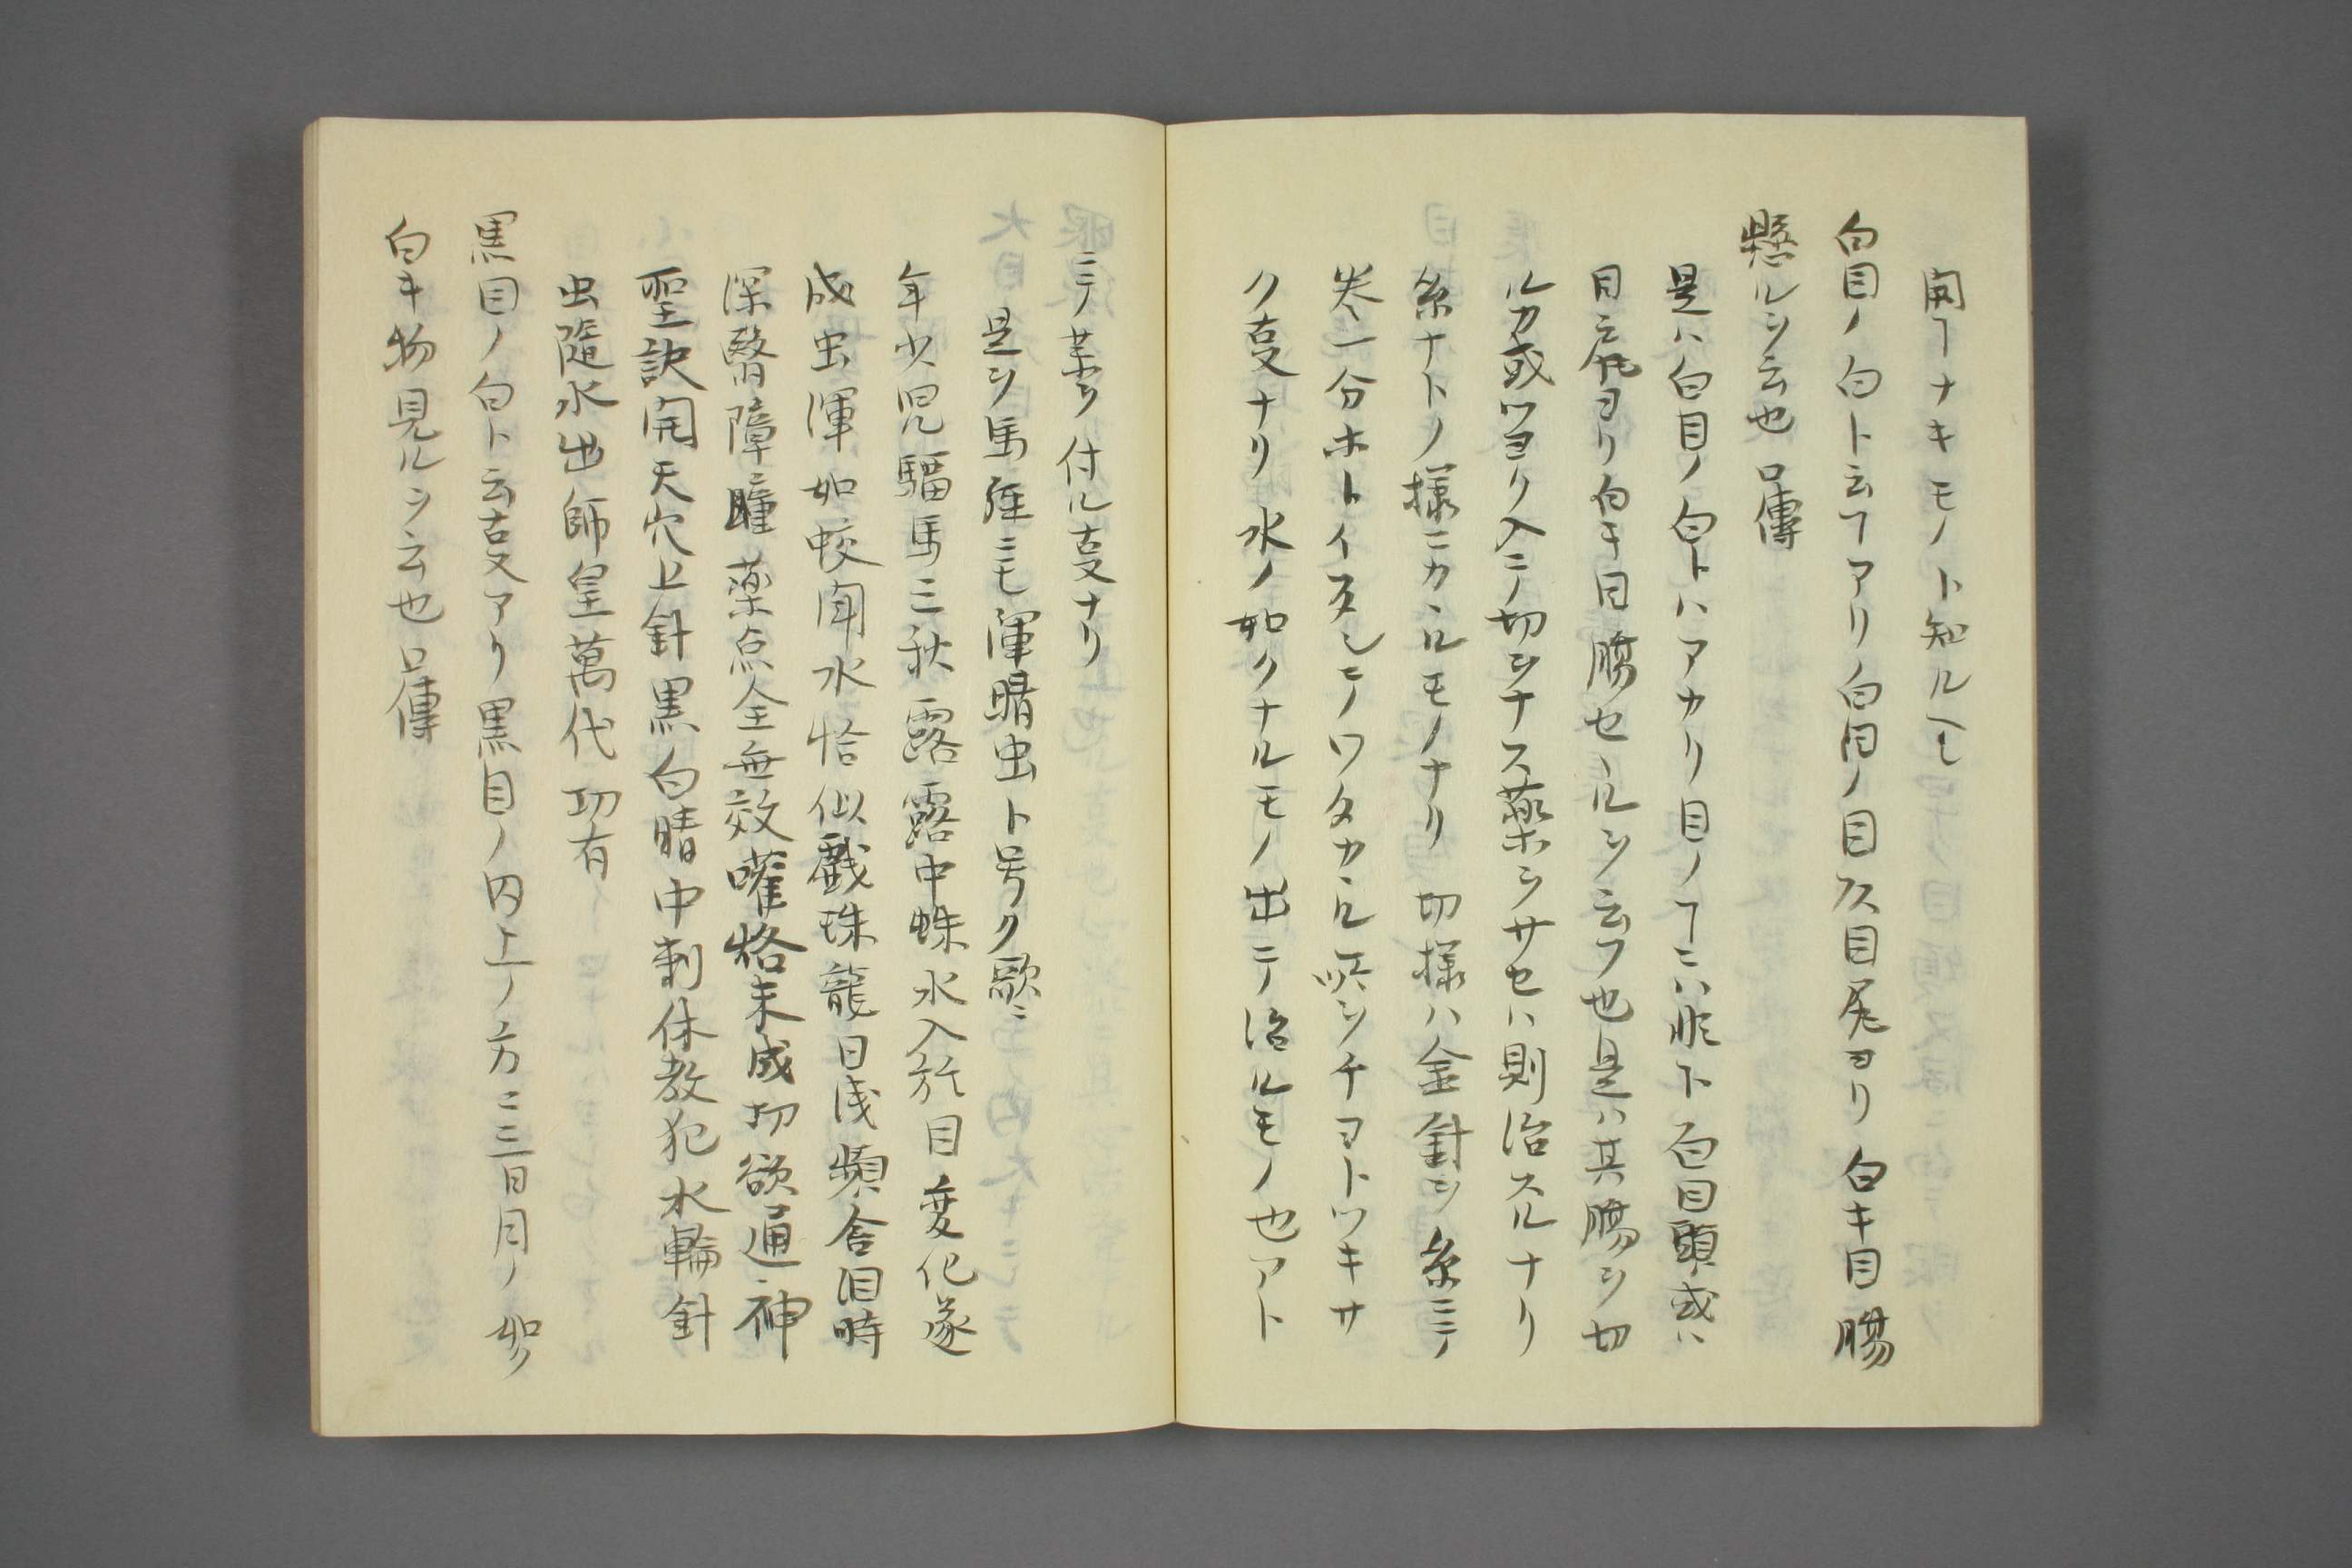 開ヿナキモノト知ルヘシ
白目ノ白ト云ヿアリノ白目ノ目又目尾ヨリ白キ目腸
懸ルヲ云也口傳
是ハ白目ノ白トハアカリ目ノヿニハ非ス白目頭或ハ
目之尾ヨリ白キ目腸セヽルヲ云フ也是ハ其腸ヲ切
ルカ或ツヨク入ニノ切ヲナス薬ヲサセハ則治スルナリ
糸ナトノ様ニカヽルモノナリ切様ハ金針ヲ糸ニテ
巻一分ホトイタシテノワタカヽル所ヲチヨトツキサ
ク叓ナリ水ノ如クナルモノ出テ治ルモノ也アト
ニテ薬ヲ付ル叓ナリ
是ヲ馬經ニモ渾睛虫ト号ク歌ニ
年少児騮馬三秋露露中蛛水入於目変化遂
成虫渾如蛟闹水恰似戲珠龍日浅頻含泪時
深翳障瞳薬点全無效嚾烙未成功欲通神
聖訣開天穴上針黒白睛中刺休教犯水輪針
虫隨水出師皇萬代功有
黒目ノ白ト云叓アリ黒目ノ内上ノ方ニ三日月ノ如ク
白キ物見ルヲ云也口傳